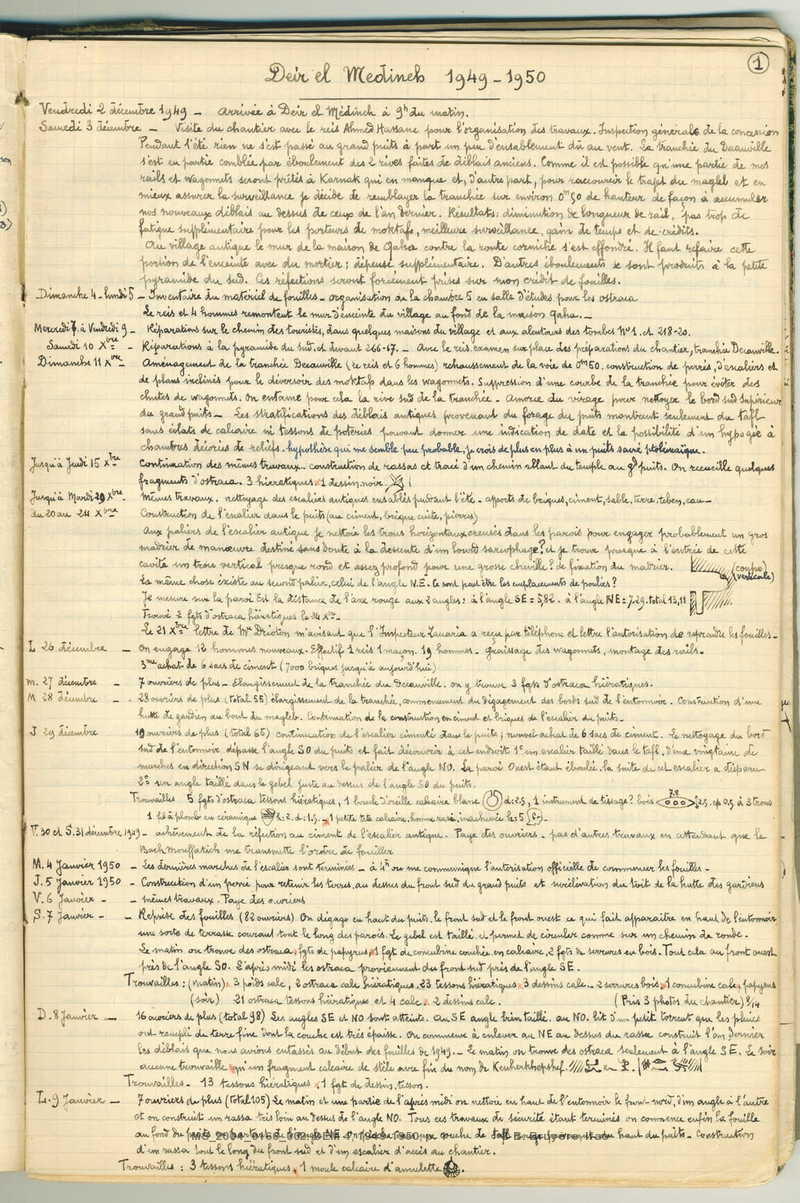 1
Deir el Medineh 1949-1950
Vendredi 2 décembre 1949 - Arrivée à Deir el Médineh à 9h du matin.
Samedi 3 décembre - Visite du chantier avec le reis Ahmed Hassane pour l'organisation des travaux. Inspection générale de la concession
Pendant l'été rien ne s'est passé au grand puits à part un peu d'ensablement dû au vent. La tranchée du Decauville
s'est en partie comblée par éboulement des 2 rives faites de déblais anciens. Comme il est possible qu'une partie de mes
rails et wagonnets seront prêtés à Karnak qui en manque et, d'autre part, pour raccourcir le trajet du magleb et en
mieux assurer la surveillance je décide de remblayer la tranchée sur environ 0m50 de hauteur de façon à accumuler
nos nouveaux déblais au dessus de ceux de l'an dernier. Résultats: diminution de longueur de rail, pas trop de
fatigue supplémentaire pour les porteurs de moktafs, meilleure surveillance, gain de temps et de crédits.
Au village antique le mur de la maison de Qaha contre la route corniche s'est effondré. Il faut refaire cette
portion de l'enceinte avec du mortier; dépense supplémentaire. D'autres éboulements se sont produits à la petite
pyramide du sud. Ces réfections seront forcément prises sur mon crédit de fouilles.
Dimanche 4 - lundi 5 - Inventaire du matériel de fouilles - organisation de la chambre 5 en salle d'études pour les ostraca
Le reis et 4 hommes remontent le mur d'enceinte du village au fond de la maison Qaha. -
Mercredi 7 à Vendredi 9 - Réparations sur le chemin des touristes, dans quelques maisons du village et aux alentours des tombes No 1 et 218-20.
Samedi 10 Xbre - Réparations à la pyramide du sud et devant 266-67. - Avec le reis, examen sur place des préparations du chantier, tranchée Decauville.
Dimanche 11 Xbre - Aménagement de la tranchée Decauville (le reis et 6 hommes) rehaussement de la voie de 0m50, construction de perrés, d'escaliers et
de plans inclinés pour le déversoir des moktafs dans les wagonnets. Suppression d'une courbe de la tranchée pour éviter des
chutes de wagonnets. On entame pour cela la rive sud de la tranchée. - Amorce du virage pour nettoyer le bord sud supérieur
du grand puits - Les stratifications des déblais antiques provenant du forage du puits montrent seulement du tafl
sans éclats de calcaire ni tessons de poteries pouvant donner une indication de date et la possibilité d'un hypogée à
chambres décorées de reliefs. hypothèse qui me semble peu probable, je crois de plus en plus à un puits sacré ptolémaïque.
Jusqu'à Jeudi 15 Xbre - Continuation des mêmes travaux. construction de rassas et tracé d'un chemin allant du temple au gd puits. On recueille quelques
fragments d'ostraca. 3 hiératiques, 1 dessin noir.
Jusqu'à Mardi 20 Xbre - Mêmes travaux. nettoyage des escaliers antiques ensablés pendant l'été - apports de briques, ciment, sable, terre, teben, eau -
du 20 au 24 Xbre - Construction de l'escalier dans le puits (au ciment, brique cuite, pierres)
Aux paliers de l'escalier antique je nettoie les trous horizontaux creusés dans les parois pour engager probablement un gros
madrier de manœuvre destiné sans doute à la descente d'un lourd sarcophage? et je trouve presque à l'entrée de cette
cavité un trou vertical presque rond et assez profond pour une grosse cheville? de fixation du madrier. (coupe verticale)
La même chose existe au second palier, celui de l'angle N.E. Ce sont peut être les emplacements de poulies?
Je mesure sur la paroi Est la distance de l'axe rouge aux 2 angles: à l'angle SE = 5,82. à l'angle NE = 7.29. total 13,11
Trouvé 2 fgts d'ostraca hiératiques le 24 Xbre
Le 21 Xbre lettre de Mr Drioton m'avisant que l'Inspecteur Zacaria a reçu par téléphone et lettre l'autorisation de reprendre les fouilles. -
L 26 décembre - On engage 12 hommes nouveaux. Effectif 1 reis 1 maçon. 19 hommes. graissage des wagonnets, montage des rails. -
3me achat de 6 sacs de ciment (7000 briques jusqu'à aujourd'hui)
m. 27 décembre - 7 ouvriers de plus - Elargissement de la tranchée du Decauville. on y trouve 3 fgts d'ostraca hiératiques.
M 28 décembre - 28 ouvriers de plus (total 55) élargissement de la tranchée, commencement du dégagement des bords sud de l'entonnoir. Construction d'une
hutte de gardien au bout du magleb. Continuation de la construction en ciment et briques de l'escalier du puits. -
J 29 décembre - 10 ouvriers de plus (total 65) continuation de l'escalier cimenté dans le puits; nouvel achat de 6 sacs de ciment. - Le nettoyage du bord
sud de l'entonnoir dépasse l'angle SO du puits et fait découvrir à cet endroit 1° un escalier taillé dans le tafl, d'une vingtaine de
marches en direction SN se dirigeant vers le palier de l'angle NO. La paroi Ouest étant éboulée, la suite de cet escalier a disparu
2° un angle taillé dans le gebel juste au dessus de l'angle SO du puits.
Trouvailles 5 fgts d'ostraca tessons hiératiques, 1 boucle d'oreille calcaire blanc d: 2,5, 1 instrument de tissage? bois 7.8 2.5. ep 0,5 à 3 trous
1 fil à plomb en céramique h: 2. d: 1.9. - 1 petite tête calcaire, homme rasé, inachevée h: 5
V. 30 et S. 31 décembre 1949 - achèvement de la réfection au ciment de l'escalier antique. Paye des ouvriers. - pas d'autres travaux en attendant que le
Bachmouffatich me transmette l'ordre de fouiller
M. 4 Janvier 1950 - Les dernières marches de l'escalier sont terminées - à 4h on me communique l'autorisation officielle de commencer les fouilles -
J. 5 Janvier 1950 - Construction d'un perré pour retenir les terres, au dessus du front sud du grand puits et surélévation du toit de la hutte des gardiens
V. 6 Janvier - - mêmes travaux. Paye des ouvriers
S. 7 Janvier - - Reprise des fouilles (82 ouvriers) On dégage en haut du puits, le front sud et le front ouest ce qui fait apparaître en haut de l'entonnoir
une sorte de terrasse courant tout le long des parois. Le gebel est taillé et permet de circuler comme sur un chemin de ronde.
Le matin on trouve des ostraca, fgts de papyrus, 1 fgt de concubine couchée en calcaire, 2 fgts de serrures en bois. Tout cela au front ouest
près de l'angle SO. L'après midi les ostraca proviennent du front sud près de l'angle SE.
Trouvailles: (matin) 3 poids calc, 2 ostraca calc hiératiques. 23 tessons hiératiques 3 dessins calc. - 2 serrures bois, 1 concubine calc, papyrus
(soir) 21 ostraca tessons hiératiques et 4 calc. 2 dessins calc. (Pris 3 photos du chantier)
D. 8 Janvier - 16 ouvriers de plus (total 98) Les angles SE et NO sont atteints. Au SE angle bien taillé. au NO. lit d'un petit torrent que les pluies
ont rempli de terre fine dont la couche est très épaisse. On commence à enlever au NE au dessus du rassa construit l'an dernier
les déblais que nous avions entassés au début des fouilles de 1949. - Le matin on trouve des ostraca seulement à l'angle SE. Le soir
aucune trouvaille qu'un fragment calcaire de stèle avec fin du nom de Kenherkhopshef.
Trouvailles - 13 tessons hiératiques, 1 fgt de dessin, tesson.
L. 9 Janvier - 7 ouvriers de plus (total 105) Le matin et une partie de l'après midi on nettoie en haut de l'entonnoir le front nord, d'un angle à l'autre
et on construit un rassa très loin au dessus de l'angle NO. Tous ces travaux de sécurité étant terminés on commence enfin la fouille
au fond du puits du haut du puits - Construction
d'un rassa tout le long du front sud et d'un escalier d'accès au chantier.
Trouvailles: 3 tessons hiératiques, 1 moule calcaire d'amulette